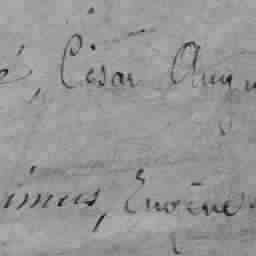 é, César Aug
imus, Eugène